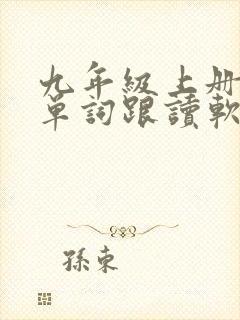 九年級上册
單詞跟讀軟
孫東